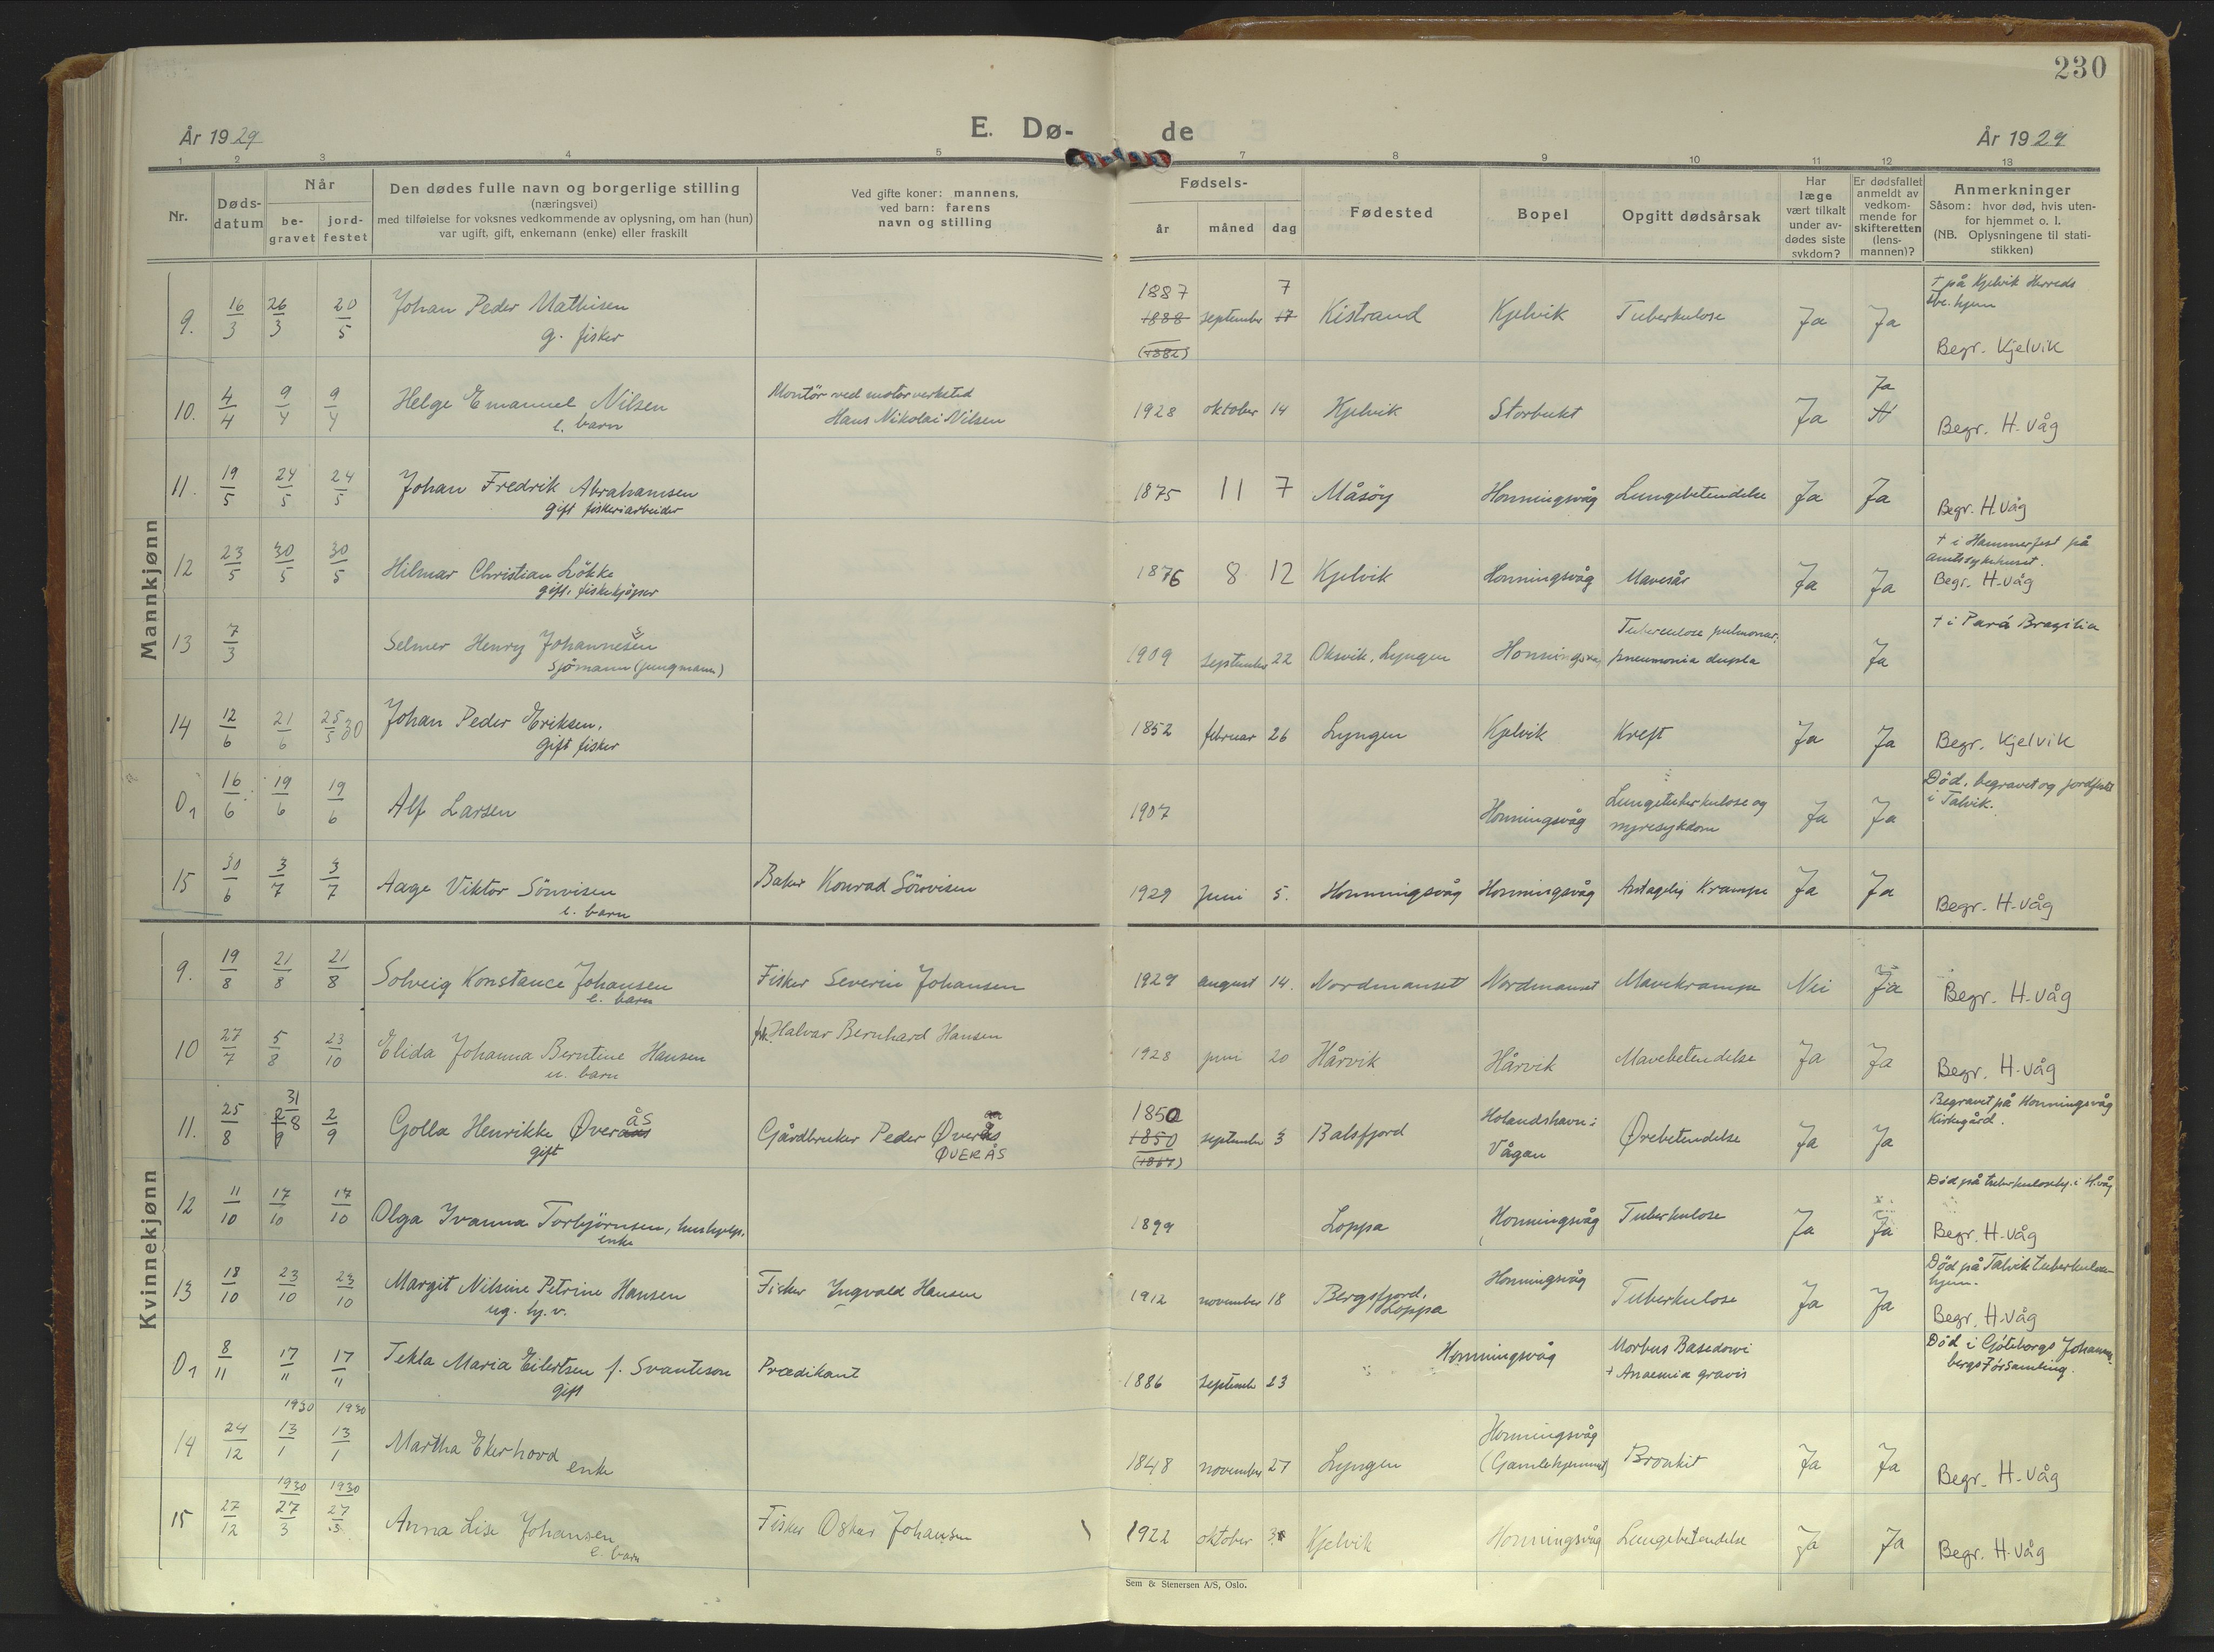 230
År 1929
E. Dø-
de
År 1929
1 2 3 4 5 7 8 9 10 11 12 13
Nr.
Døds-
datum
Når
be-
gravet
jord-
festet
Den dødes fulle navn og borgerlige stilling
(næringsvei)
med tilføielse for voksnes vedkommende av oplysning, om han (hun)
var ugift, gift, enkemann (enke) eller fraskilt
Ved gifte koner: mannens,
ved barn: farens
navn og stilling
Fødsels-
år
måned
dag
Fødested
Bopel
Opgitt dødsårsak
Har
læge
vært tilkalt
under av-
dødes siste
sykdom?
Er dødsfallet
anmeldt av
vedkom-
mende for
skifteretten
(lens-
mannen)?
Anmerkninger
Såsom: hvor død, hvis uten-
for hjemmet o. l.
(NB. Oplysningene til stati-
stikken)
Mannkjønn
9. 16/3 26/3 20/5 Johan Peder Mathisen
g. fisker
1887 7
1888 september 17 Kistrand Kjelvik Tuberkulose Ja Ja
(1882)
† på Kjelvik Herreds
tbc. hjem
Begr. Kjelvik
10. 4/4 9/4 9/4 Helge Emanuel Nilsen
e. barn
Montör ved motorverksted
Hans Nikolai Nilsen
1928 oktober 14 Kjelvik Storbukt Ja Ja
N
Begr. H-Våg
11. 19/5 24/5 24/5 Johan Fredrik Abrahamsen
gift fiskeriarbeider
1875 11 7 Måsöy Honningsvåg Lungebetendelse Ja Ja
Begr. H.Våg
12 23/5 30/5 30/5 Hilmar Christian Lökke
gift. fiskekjöper
1876 8 12 Kjelvik Honningsvåg Mavesår Ja Ja
† i Hammerfest på
amtssykehuset.
Begr. H.Våg
13 7/3 Selmer Henry Johannesen
Sjömann (jungmann)
1909 september 22 Oksvik, Lyngen Honningsvåg
Tuberculose pulmonar.
pneumonia dupla
Ja
† i Pará Brazilia
14 12/6 21/6 25/5 30 Johan Peder Eriksen.
gift fisker
1852 februar 26 Lyngen Kjelvik Kreft Ja Ja
Begr. Kjelvik
01 16/6 19/6 19/6 Alf Larsen
1907 Honningsvåg
Lungetuberkulose og
nyresykdom
Ja Ja
Död, begravet og jordfestet
i Talvik.
15 30/6 3/7 3/7 Aage Viktor Sönvisen
e. barn
Baker Konrad Sönvisen
1929 Juni 5. Honningsvåg Honningsvåg Antagelig Krampe Ja Ja
Begr. H-Våg
Kvinnekjønn
9. 19/8 21/8 21/8 Solveig Konstance Johansen
e. barn
Fisker Severin Johansen
1929 august 14. Nordmanset Nordmanset Mavekrampe Nei Ja
Begr. H-Våg
10 27/7 5/8 23/10 Elida Johanna Berntine Hansen
u. barn
fsk. Halvar Bernhard Hansen
1928 juni 20 Hårvik Hårvik Mavebetendelse Ja Ja
Begr. H-Våg
11. 25/8 31/8 2/9 Golla Henrikke Øverås
gift
Gårdbruker Peder Øverås
ØVERÅS
1850
1850 september 3 Balsfjord
(1867)
Holandshavn i
Vågan
Ørebetendelse Ja Ja
Begravet på Honningsvåg
Kirkegård.
12 11/10 17/10 17/10 Olga Ivanna Torbjörnsen, hushjelp.
enke
1899 Loppa Honningsvåg Tuberkulose Ja Ja
Död på tuberkulosehj. i H.våg
Begr. H-Våg
13 18/10 23/10 23/10 Margit Nilsine Petrine Hansen
ug. hj. v.
Fisker Yngvald Hansen
1912 november 18 Bergsfjord,
Loppa
Honningsvåg Tuberkulose Ja Ja
Död på Talvik tuberkulose-
hjem.
Begr. H-Våg
01 8/11 17/11 17/11 Tekla Maria Eilertsen f. Svanteson
gift
Prædikant
1886 september 23 Honningsvåg
Morbus Basedowi
+ Anaemia gravis
Död i Göteborgs Johanne-
bergs Församling.
1930 1930
14 24/12 13/1 13/1 Martha Ekerhovd
enke
1848 november 27 Lyngen
Honningsvåg
(Gamlehjemmet)
Bronkit Ja Ja
Begr. H-Våg
1930 1930
15 27/12 27/3 27/3 Anna Lise Johansen
e. barn
Fisker Oskar Johansen
1922 oktober Kjelvik Honningsvåg Lungebetendelse Ja Ja
Begr. H-Våg
Sem & Stenersen A/S, Oslo.